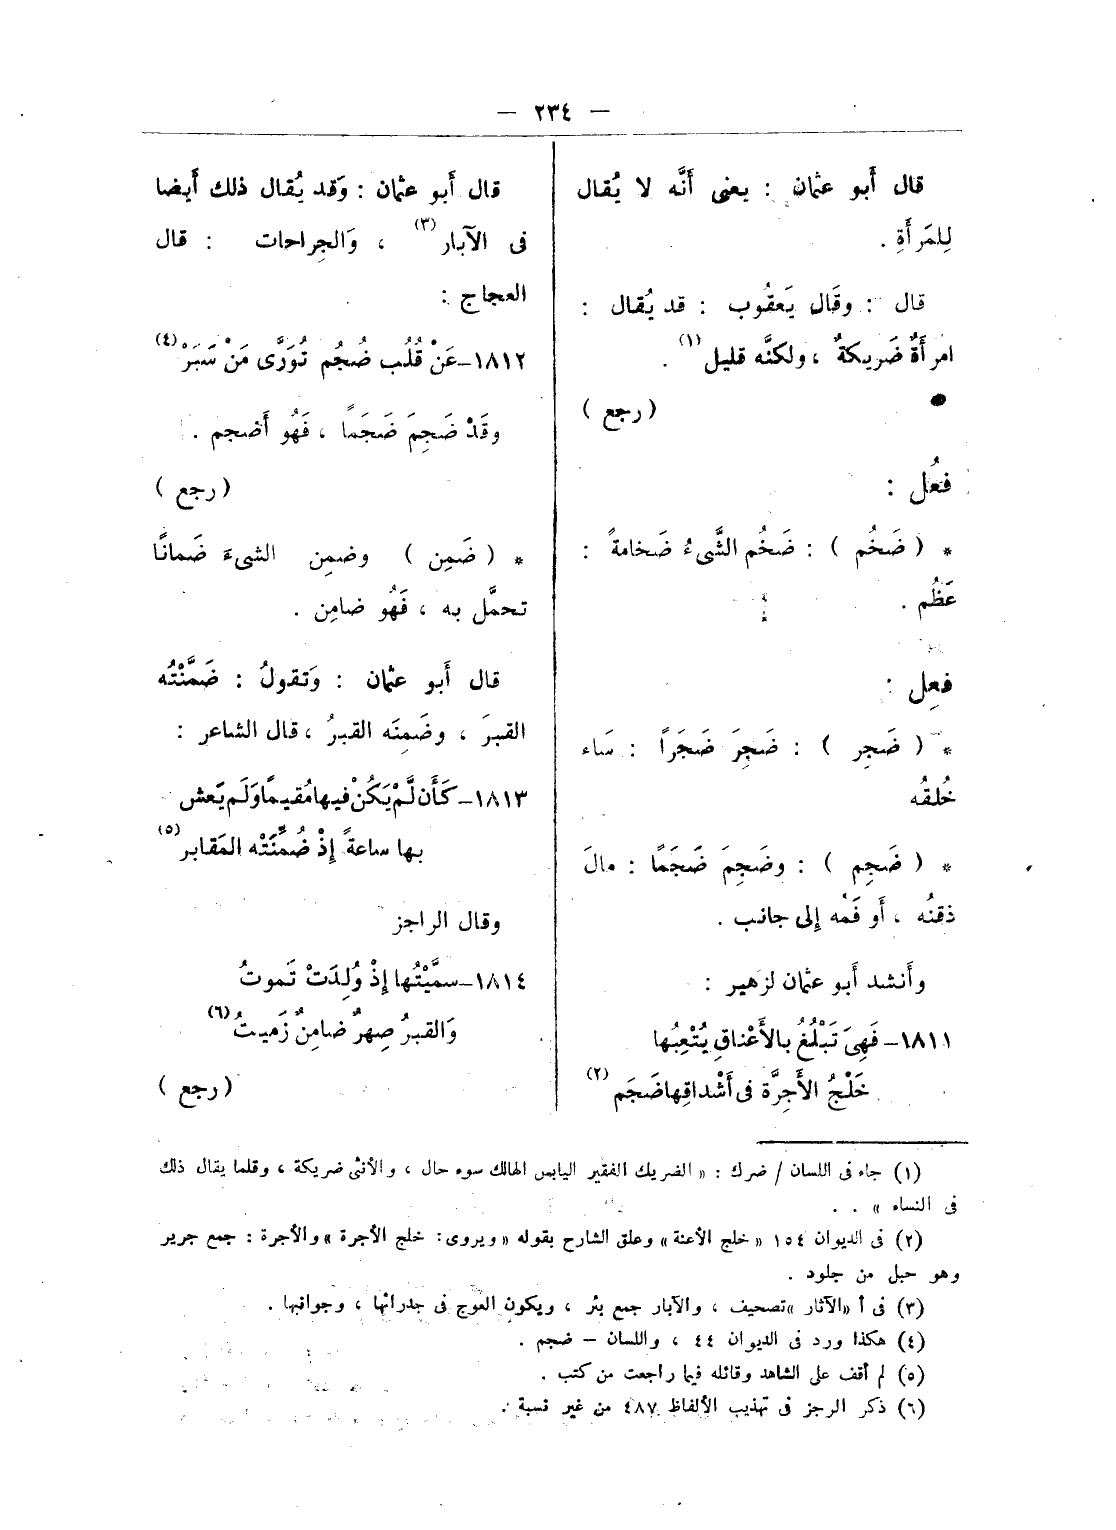 — ٢٣٤ —
قال أَبو عثمان : يعنى أَنَّه لا يُقال
لِلمَرأَةِ .
قال : وقَال يَعقُوب : قد يُقال :
امرأَةٌ ضَريكةٌ ، ولكنَّه قليل (١) .
( رجع )
فعُل :
* ( ضَخُم ) : ضَخُم الشَّىءُ ضَخامةً :
عَظُم .
فعِل :
* ( ضَجِر ) : ضَجِرَ ضَجَرًا : سَاء
خُلقُه
* ( ضَجِم ) : وضَجِمَ ضَجَمًا : مالَ
ذقنُه ، أَو فَمُه إِلى جانب .
وأَنشد أَبو عثمان لزهير :
١٨١١– فَهِىَ تَبْلُغُ بالأَعْناقِ يُتْعِبُها
خَلْجُ الأَجِرَّة فى أَشْداقِها ضَجَم (٢)
قال أَبو عثمان : وَقد يُقال ذلك أَيضا
فى الآبار (٣) ، وَالجِراحات : قال
العجاج :
١٨١٢–عَنْ قُلُب ضُجُم تُوَرَّى مَنْ سَبَرْ (٤)
وقَدْ ضَجِمَ ضَجَمًا ، فَهُو أَضجم .
( رجع )
* ( ضَمِن ) وضمِن الشىءَ ضَمانًا
تحمَّل به ، فَهُو ضامِن .
قال أَبو عثمان : وَتقولُ : ضَمَّنْتُه
القبرَ ، وضَمِنَه القبرُ ، قال الشاعر :
١٨١٣–كَأَن لَّمْ يَكُنْ فيها مُقيمًا وَلَم يَعش
بها ساعةً إِذْ ضُمِّنَتْه المَقابر (٥)
وقال الراجز
١٨١٤–سمَّيْتُها إِذْ وُلِدَتْ تَموتُ
وَالقبرُ صِهرٌ ضامِنٌ زَميتُ (٦)
( رجع )
(١) جاء فى اللسان / ضرك : « الضريك الفقير اليابس الهالك سوء حال ، والأنثى ضريكة ، وقلما يقال ذلك
فى النساء » . .
(٢) فى الديوان ١٥٤ « خلج الأعنة » وعلق الشارح بقوله « ويروى : خلج الأجرة » والأجرة : جمع جرير
وهو حبل من جلود .
(٣) فى أ « الآثار » تصحيف ، والآبار جمع بئر ، ويكون العوج فى جدرانها ، وجوانبها .
(٤) هكذا ورد فى الديوان ٤٤ ، واللسان – ضجم .
(٥) لم أقف على الشاهد وقائله فيما راجعت من كتب .
(٦) ذكر الرجز فى تهذيب الألفاظ ٤٨٧ من غير نسبة .